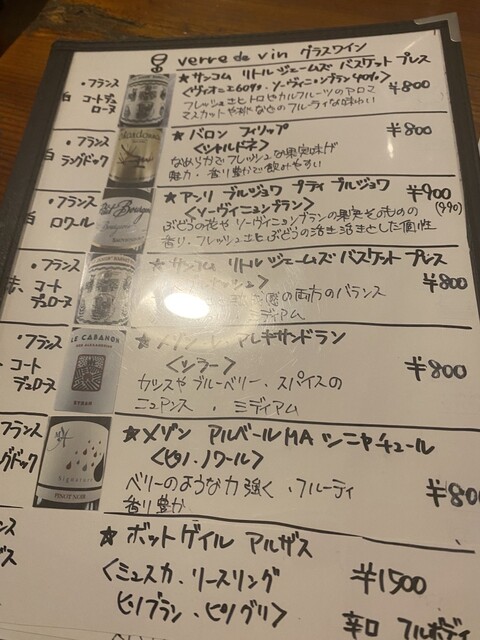 verre de vin グラスワイン
・フランス
白 コートデュ
ローヌ
★サンコム リトル ジェームズ バスケット プレス
<ヴィオニエ60%、ソーヴィニヨンブラン40%>
¥800
フレッシュさとトロピカルフルーツのアロマ
マスカットや桃などのフルーティな味わい
・フランス
白 ラングドック
★バロン フィリップ
<シャルドネ>
¥800
なめらかでフレッシュな果実味が
魅力・香り豊かで飲みやすい
・フランス
白 ロワール
★アンリ ブルジョワ プティ ブルジョワ
<ソーヴィニヨンブラン>
¥900
(990)
ぶどうの花や ソーヴィニヨンブランの果実そのものの
香り、フレッシュさとぶどうの活き活きとした個性
・フランス
赤、コート
デュローヌ
★サンコム リトル ジェームズ バスケット プレス
¥800
感の両方のバランス
ディアム
・フランス
コート
デュローヌ
LE CABANON
SYRAH
アレキサンドラン
<シラー>
¥800
カシスやブルーベリー、スパイスの
ニュアンス 、ミディアム
フランス
ングドック
Signature
PINOT NOIR
★メゾン アルベールMA シニャチュール
<ピノ・ノワール>
¥800
ベリーのような力強く、フルーティ
香り豊か
★ボットゲイル アルザス
<ミュスカ、リースリング
ピノブラン、ピノグリ>
¥1500
辛口 フルボディ